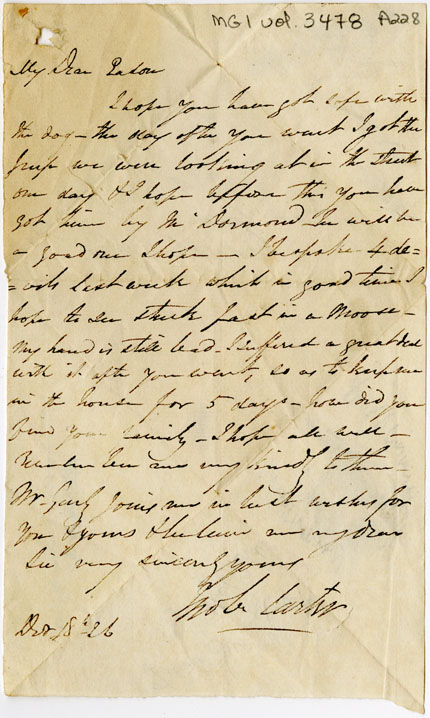 MG1 vol. 3478 A228
My Dear
I hope you have got safe with
the dog - the day after you went I got the
we were looking at in the street
one day & I hope before this you have
got him by Mr Dormond He will be
a good one I hope - I bespoke 4 de=
=vils last week which in good time I
hope to see stuck fast in a Moose -
My hand is still bad. I suffered a great deal
with it after you went, so as to keep me
in the house for 5 days - how did you
find your family - I hope all well -
Remember me very kindly to them -
Mr joins me in best wishes for
you & yours & believe me my dear
Sir very sincerely yours
Carter
18th 26